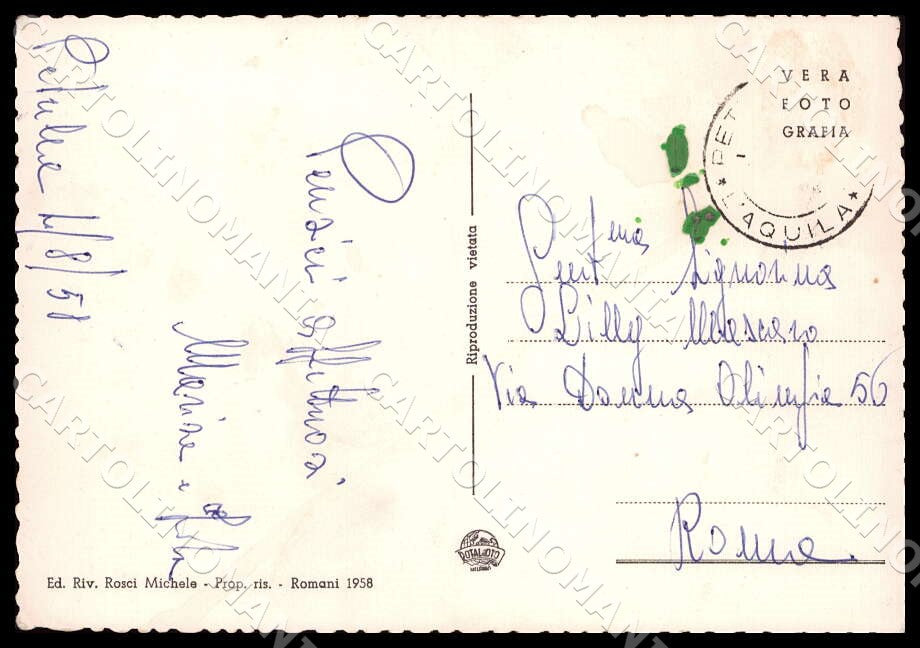 Petrella 4/8/58
Pensieri affettuosi
Marisa e
VERA
FOTO
GRAFIA
PET
L'AQUILA
Gent.ma Signorina
Lilly Mascaro
Via Donna Olimpia 56
Roma.
Riproduzione vietata
ROTALFOTO
MILANO
Ed. Riv. Rosci Michele - Prop. ris. - Romani 1958
CARTOLINOMANTI